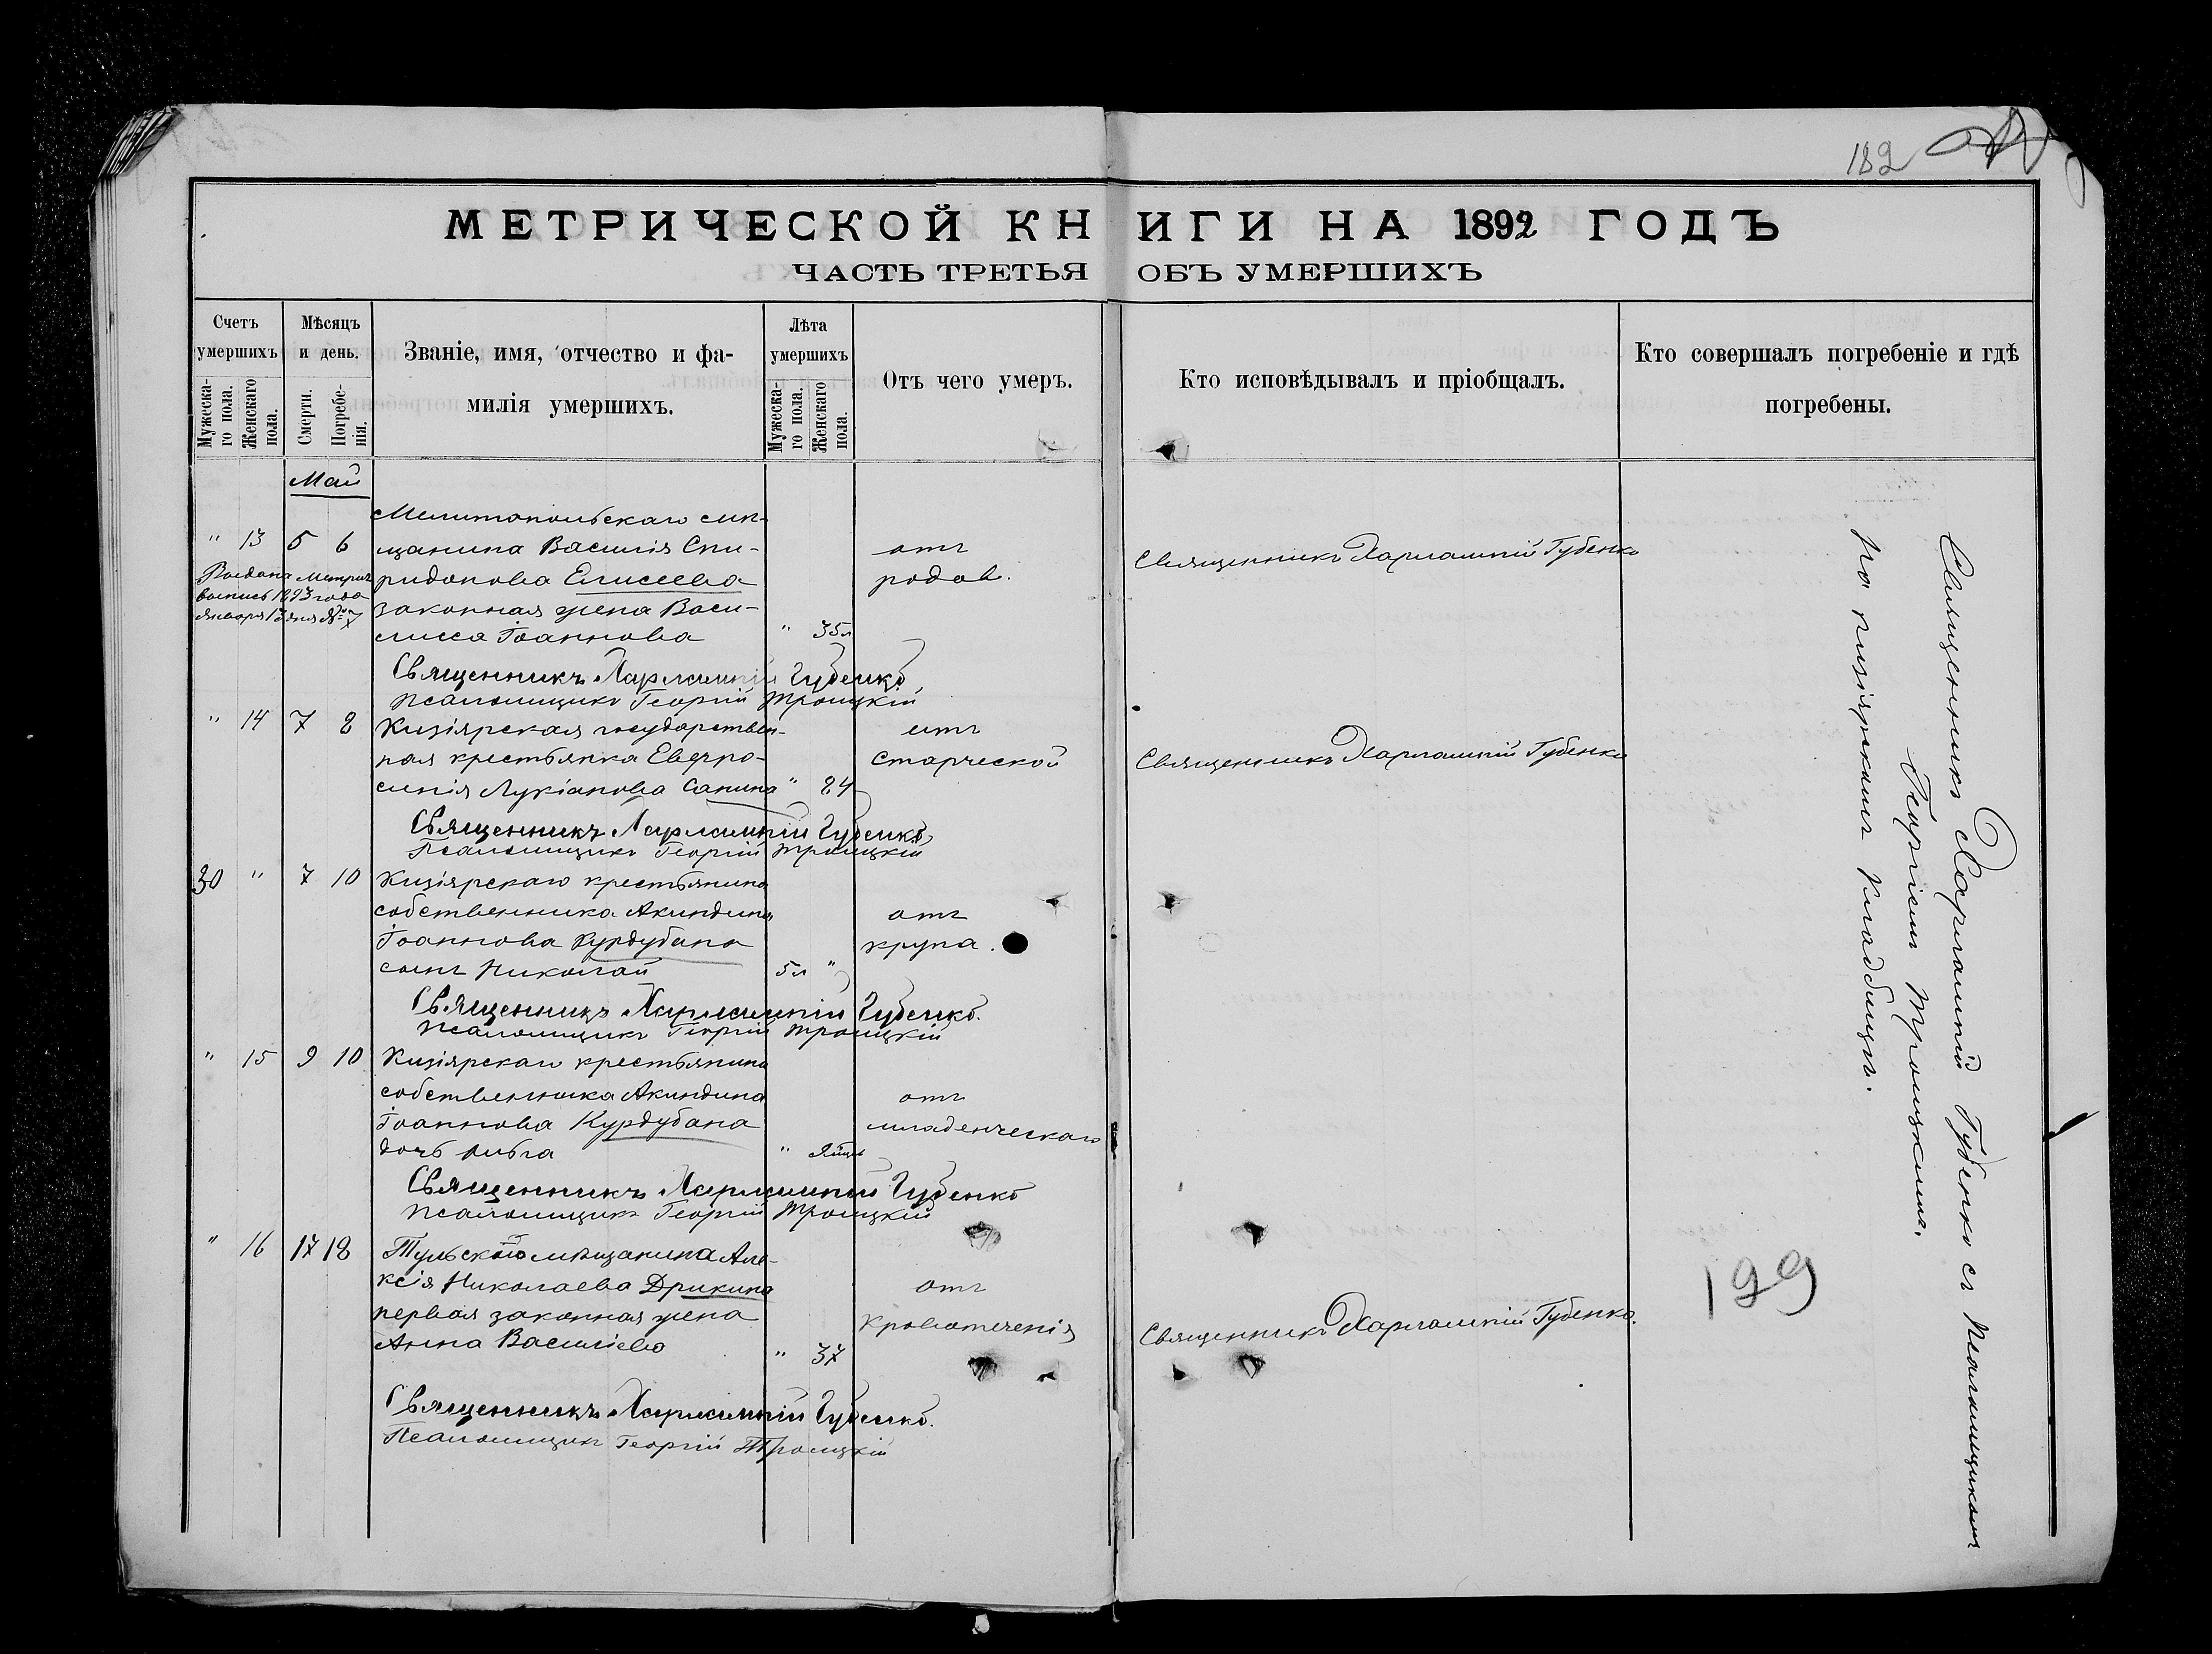 182
МЕТРИЧЕСКОЙ КНИГИ НА 1892 ГОДЪ
ЧАСТЬ ТРЕТЬЯ ОБЪ УМЕРШИХЪ
Счетъ умершихъ
Мужеска-го пола.
Женскаго пола.
Мѣсяцъ и день.
Смерти.
Погребе-нія.
Званіе, имя, отчество и фа-
милія умершихъ.
Лѣта умершихъ
Мужеска-го пола.
Женскаго пола.
Отъ чего умеръ.
Кто исповѣдывалъ и пріобщалъ.
Кто совершалъ погребеніе и гдѣ
погребены.
Май
Мелитопольскаго мѣ-
" 13 5 6 щанина Василія Спи- отъ Священникъ Харлампій Губенко
ридонова Елисеева родов.
законная жена Васи-
лисса Іоаннова " 35л
Выдана метрич
выпись 1893 года
Января 13 дня № 7
Священникъ Харлампій Губенко
Псаломщикъ Георгій Троицкій
" 14 7 8 Кизіярская государствен- отъ
ная крестьянка Евфро- старческой Священникъ Харлампій Губенко
синія Лукіанова Санина " 84
Священникъ Харлампій Губенко
Псаломщикъ Георгій Троицкій
30 " 7 10 Кизіярскаго крестьянина
собственника Акиндина отъ
Іоаннова Курдубана крупа.
сынъ Николай 5л "
Священникъ Харлампій Губенко.
Псаломщикъ Георгій Троицкій
" 15 9 10 Кизіярскаго крестьянина
собственника Акиндина отъ
Іоаннова Курдубана младенческаго
дочь "
Священникъ Харлампій Губенко
Псаломщикъ Георгій Троицкій
" 16 17 18 Тульскаго мѣщанина Але-
ксія Николаева Дрикина отъ
первая законная жена кровотеченія
Анна Василіева " 37 Священникъ Харлампій Губенко.
Священникъ Харлампій Губенко.
Псаломщикъ Георгій Троицкій
Священникъ Харлампій Губенко съ Псаломщикомъ
Георгіемъ Троицкимъ.
На кизіярскомъ кладбищѣ.
199